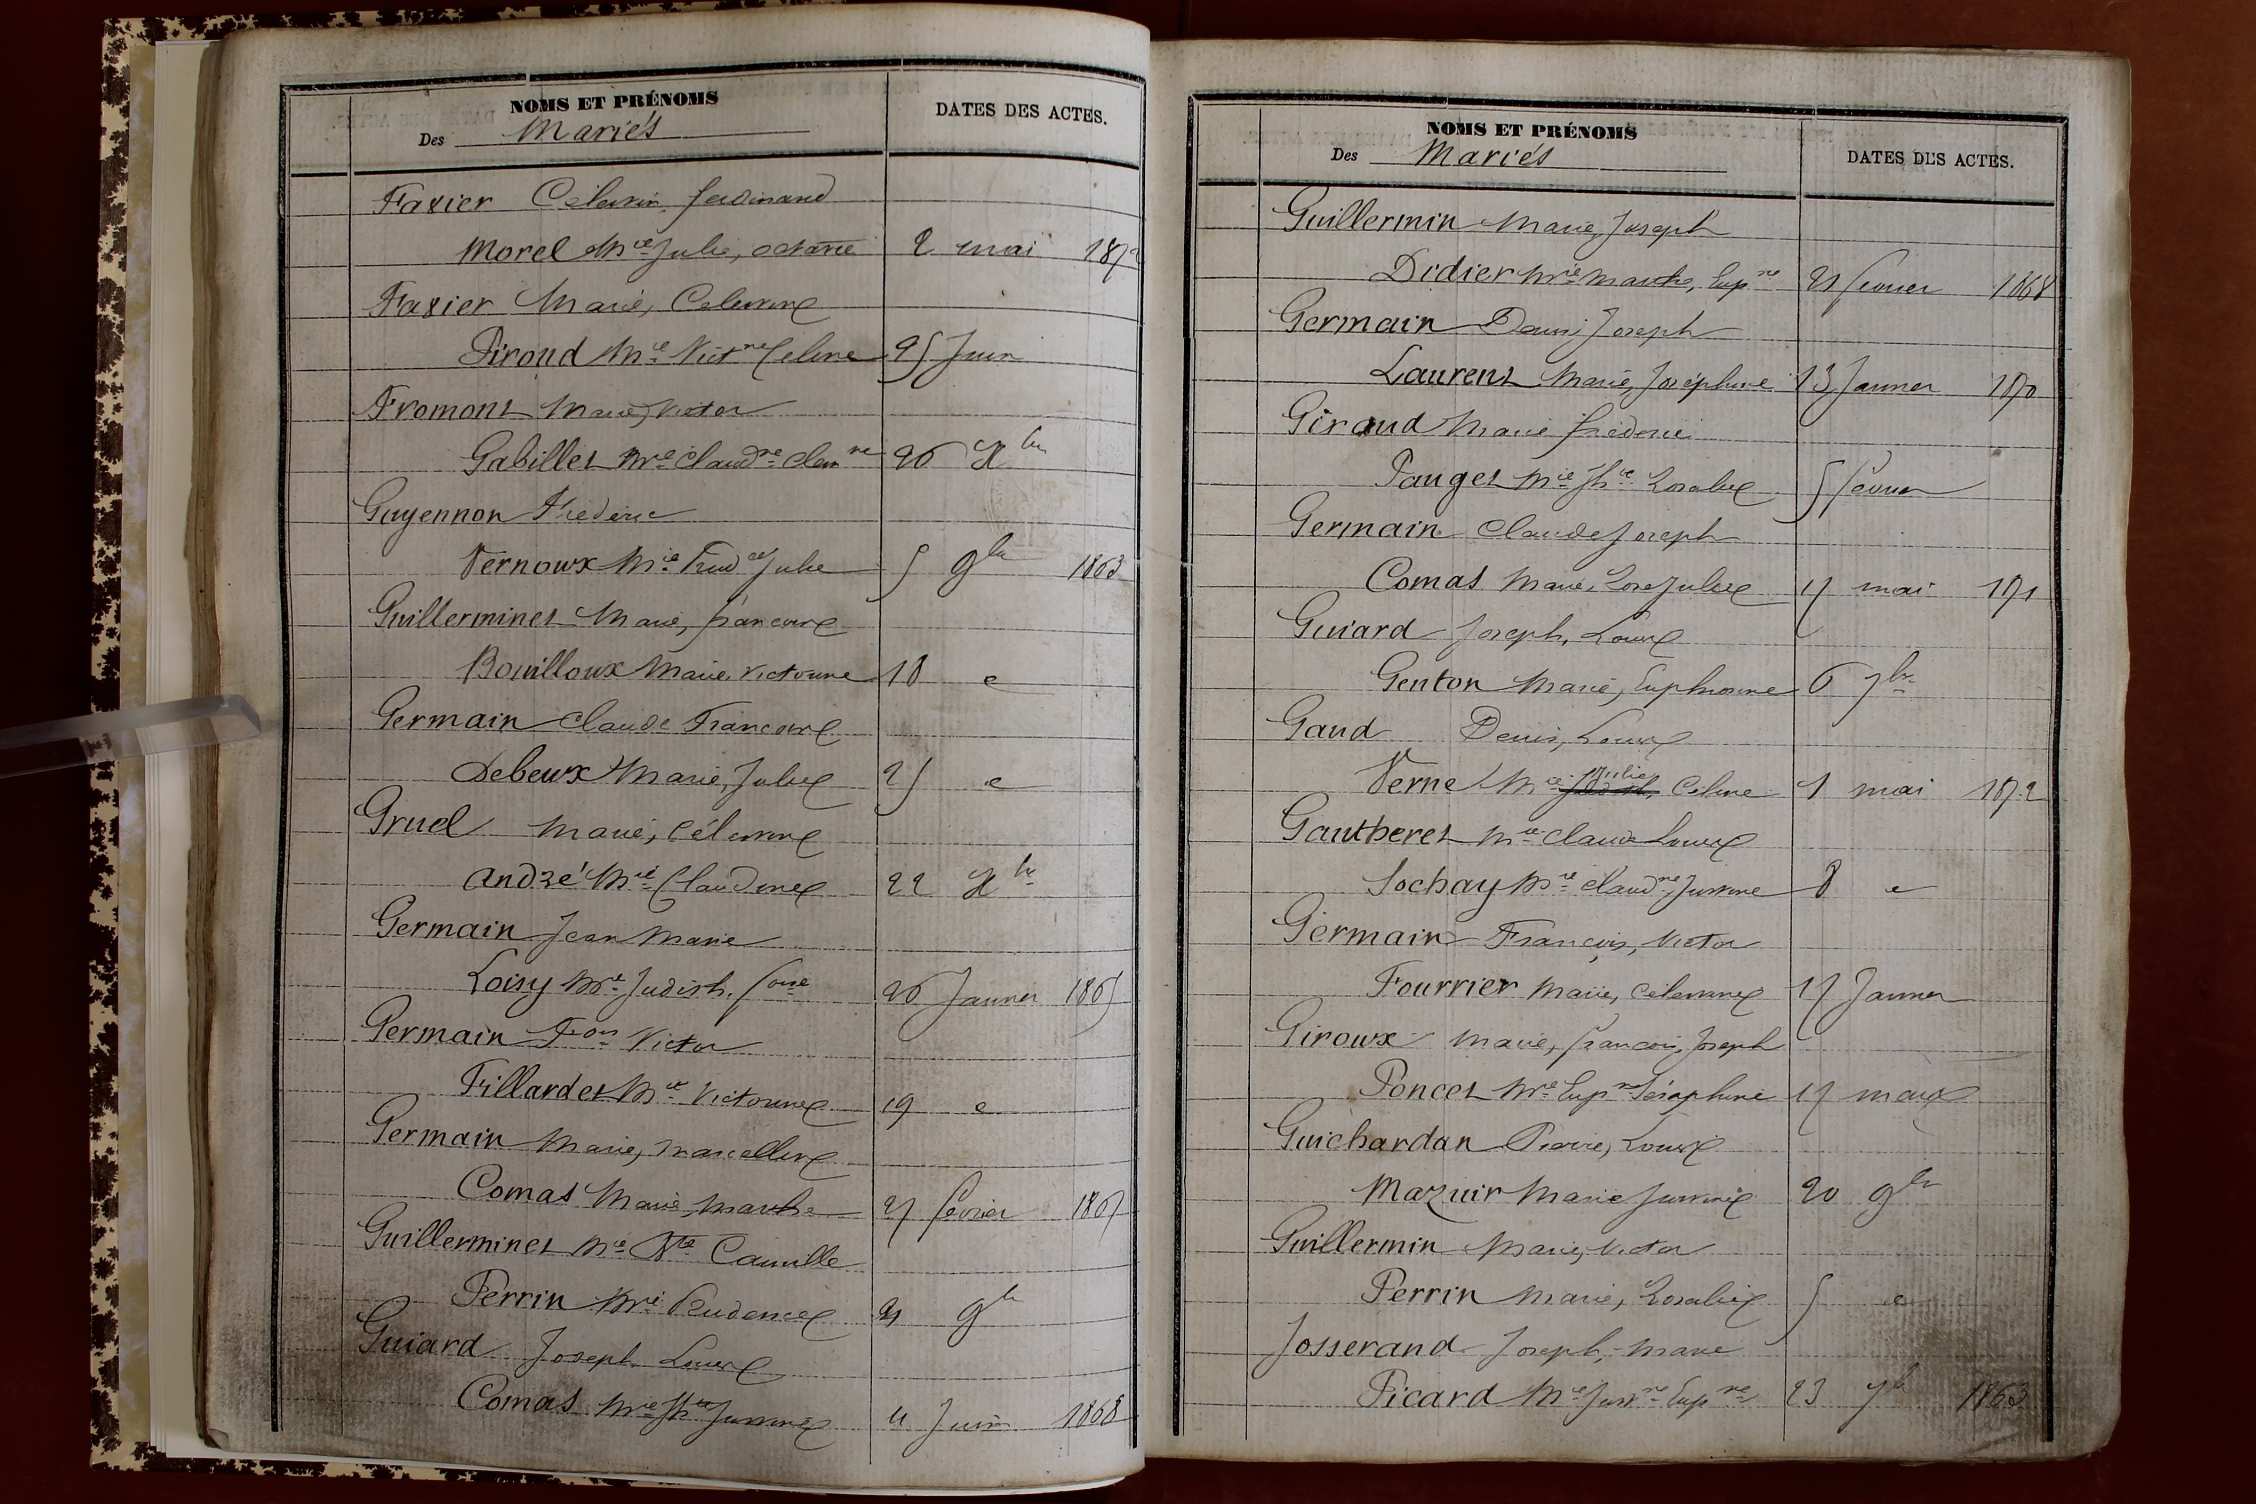 NOMS ET PRÉNOMS
Des Mariés
DATES DES ACTES.
Favier Célestin, ferdinand
Morel Mie Julie, octavie 2 mai 1872
Favier Marie, Celestin
Piroud Mie Victne Celine 25 Juin
Fromont Marie, Victor
Gabillet Mie Claudne Clem ne 26 Xbre
Guyennon Frédéric
Vernoux Mie Prudce Julie 5 9bre 1863
Guillerminet Marie, françois
Bouilloux Marie, Victorine 18 e
Germain Claude François
Debeux Marie, Julie 25 e
Gruel Marie, Célestin
André Mie Claudine 22 Xbre
Germain Jean Marie
Loisy Mie Judith, foise 26 Janvier 1865
Germain Fois Victor
Fillardet Mie Victorine 19 e
Germain Marie, Marcellin
Comas Marie, Marthe 27 février 1867
Guillerminet Mie Camille
Perrin Mie Prudence 21 9bre
Guiard Joseph Louis
Comas Mie Justine 4 Juin 1868
NOMS ET PRÉNOMS
Des Mariés
DATES DES ACTES.
Guillermin Marie, Joseph
Didier Mie Marthe, Eupne 21 février 1868
Germain Denis Joseph
Laurent Marie, Joséphine 13 Janvier 1870
Giraud Marie frédéric
Pauget Mie Rosalie 5 février
Germain Claude Joseph
Comas Marie, Rose Julie 17 mai 1871
Guiard Joseph, Louis
Genton Marie, Euphrosine 6 7bre
Gaud Denis, Louis
Verne Mie Julie Celine 1 mai 1872
Gautheret Mie Claude Louis
Sochay Mie Claudne Justine 8 e
Germain François, Victor
Fourrier Marie, Celestine 17 Janvier
Giroux Marie, françois, Joseph
Poncet Mie Eupne Séraphine 17 mars
Guichardan Pierre, Louis
Mazuir Marie Justine 20 9bre
Guillermin Marie, Victor
Perrin Marie, Rosalie 5 e
Josserand Joseph, Marie
Picard Mie Justne Eupne 23 7bre 1863